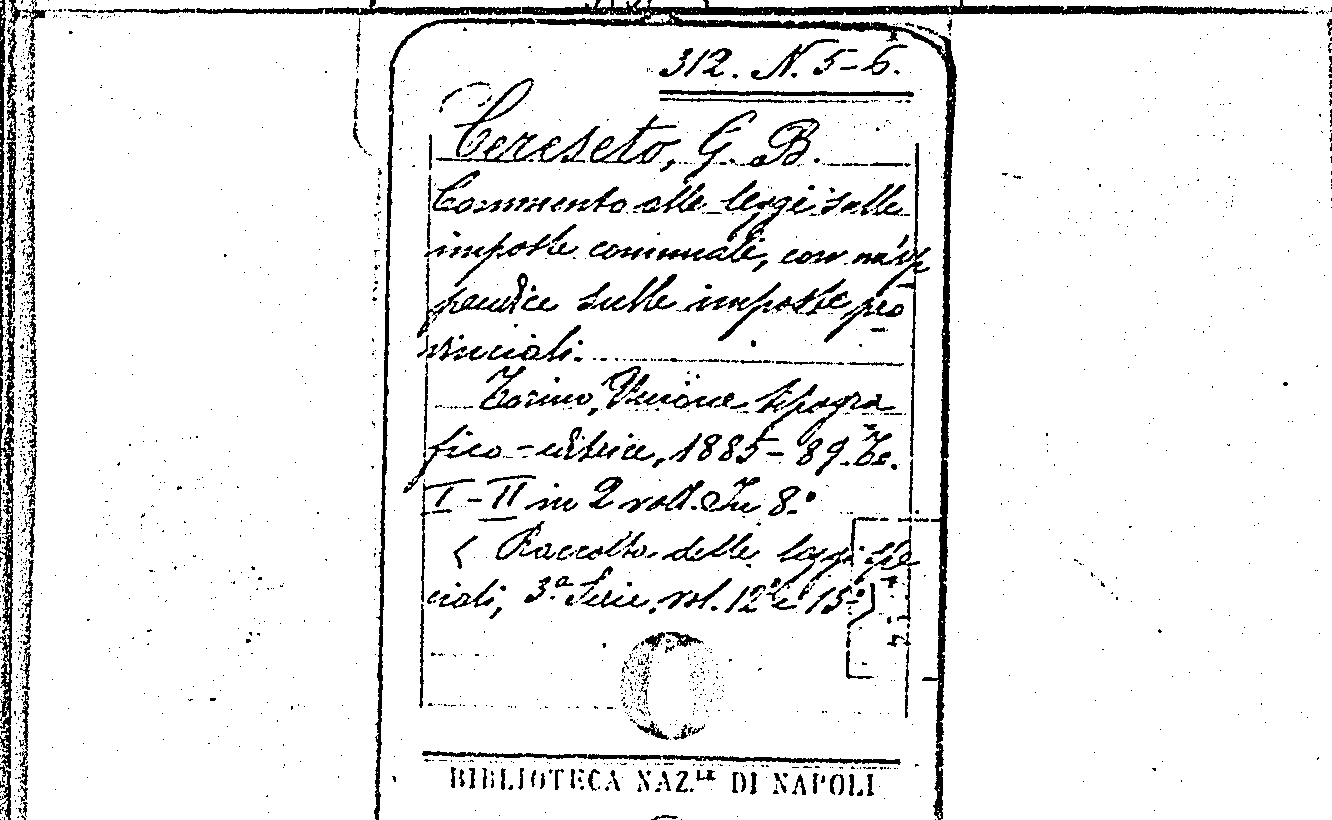 312. N. 5-6.
Cereseto, G. B.
Commento alle leggi sulle
imposte comunali, con un'ap
pendice sulle imposte pro
vinciali.
Torino, Unione tipogra
fico-editrice, 1885-89. To.
I-II in 2 voll. In 8.°
(Raccolta delle leggi spe
ciali, 3.ª Serie, vol. 12° e 15°)
BIBLIOTECA NAZ.LE DI NAPOLI